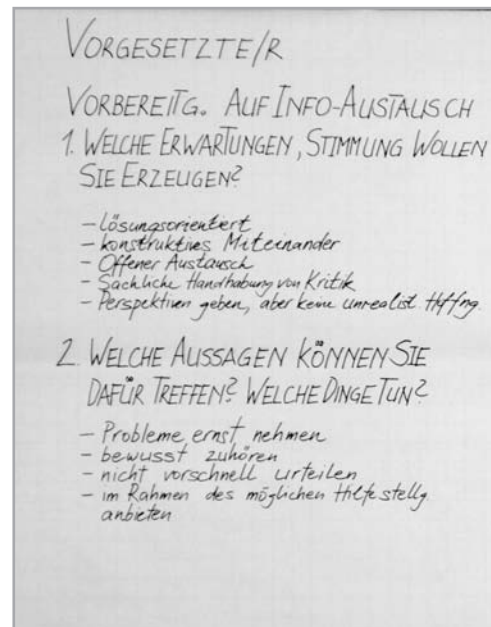 VORGESETZTE/R
VORBEREITG. AUF INFO-AUSTAUSCH
1. WELCHE ERWARTUNGEN, STIMMUNG WOLLEN
SIE ERZEUGEN?
– lösungsorientiert
– konstruktives Miteinander
– Offener Austausch
– Sachliche Handhabung von Kritik
– Perspektiven geben, aber keine unrealist. Hoffng.
2. WELCHE AUSSAGEN KÖNNEN SIE
DAFÜR TREFFEN? WELCHE DINGE TUN?
– Probleme ernst nehmen
– bewusst zuhören
– nicht vorschnell urteilen
– im Rahmen des möglichen Hilfestellg.
anbieten